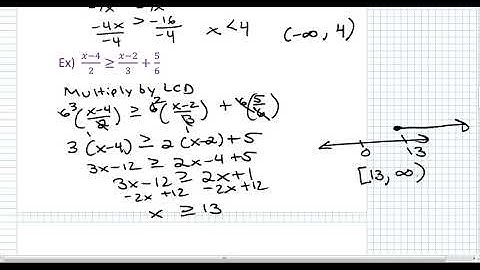 -4x/-4 > -16/-4   x < 4   (-∞, 4)
Ex) x-4/2 ≥ x-2/3 + 5/6
Multiply by LCD
6³(x-4/2) ≥ 6²(x-2/3) + 6(5/6)
3(x-4) ≥ 2(x-2)+5
3x-12 ≥ 2x-4+5
3x-12 ≥ 2x+1
-2x+12   -2x+12
x ≥ 13
0   13
[13, ∞)